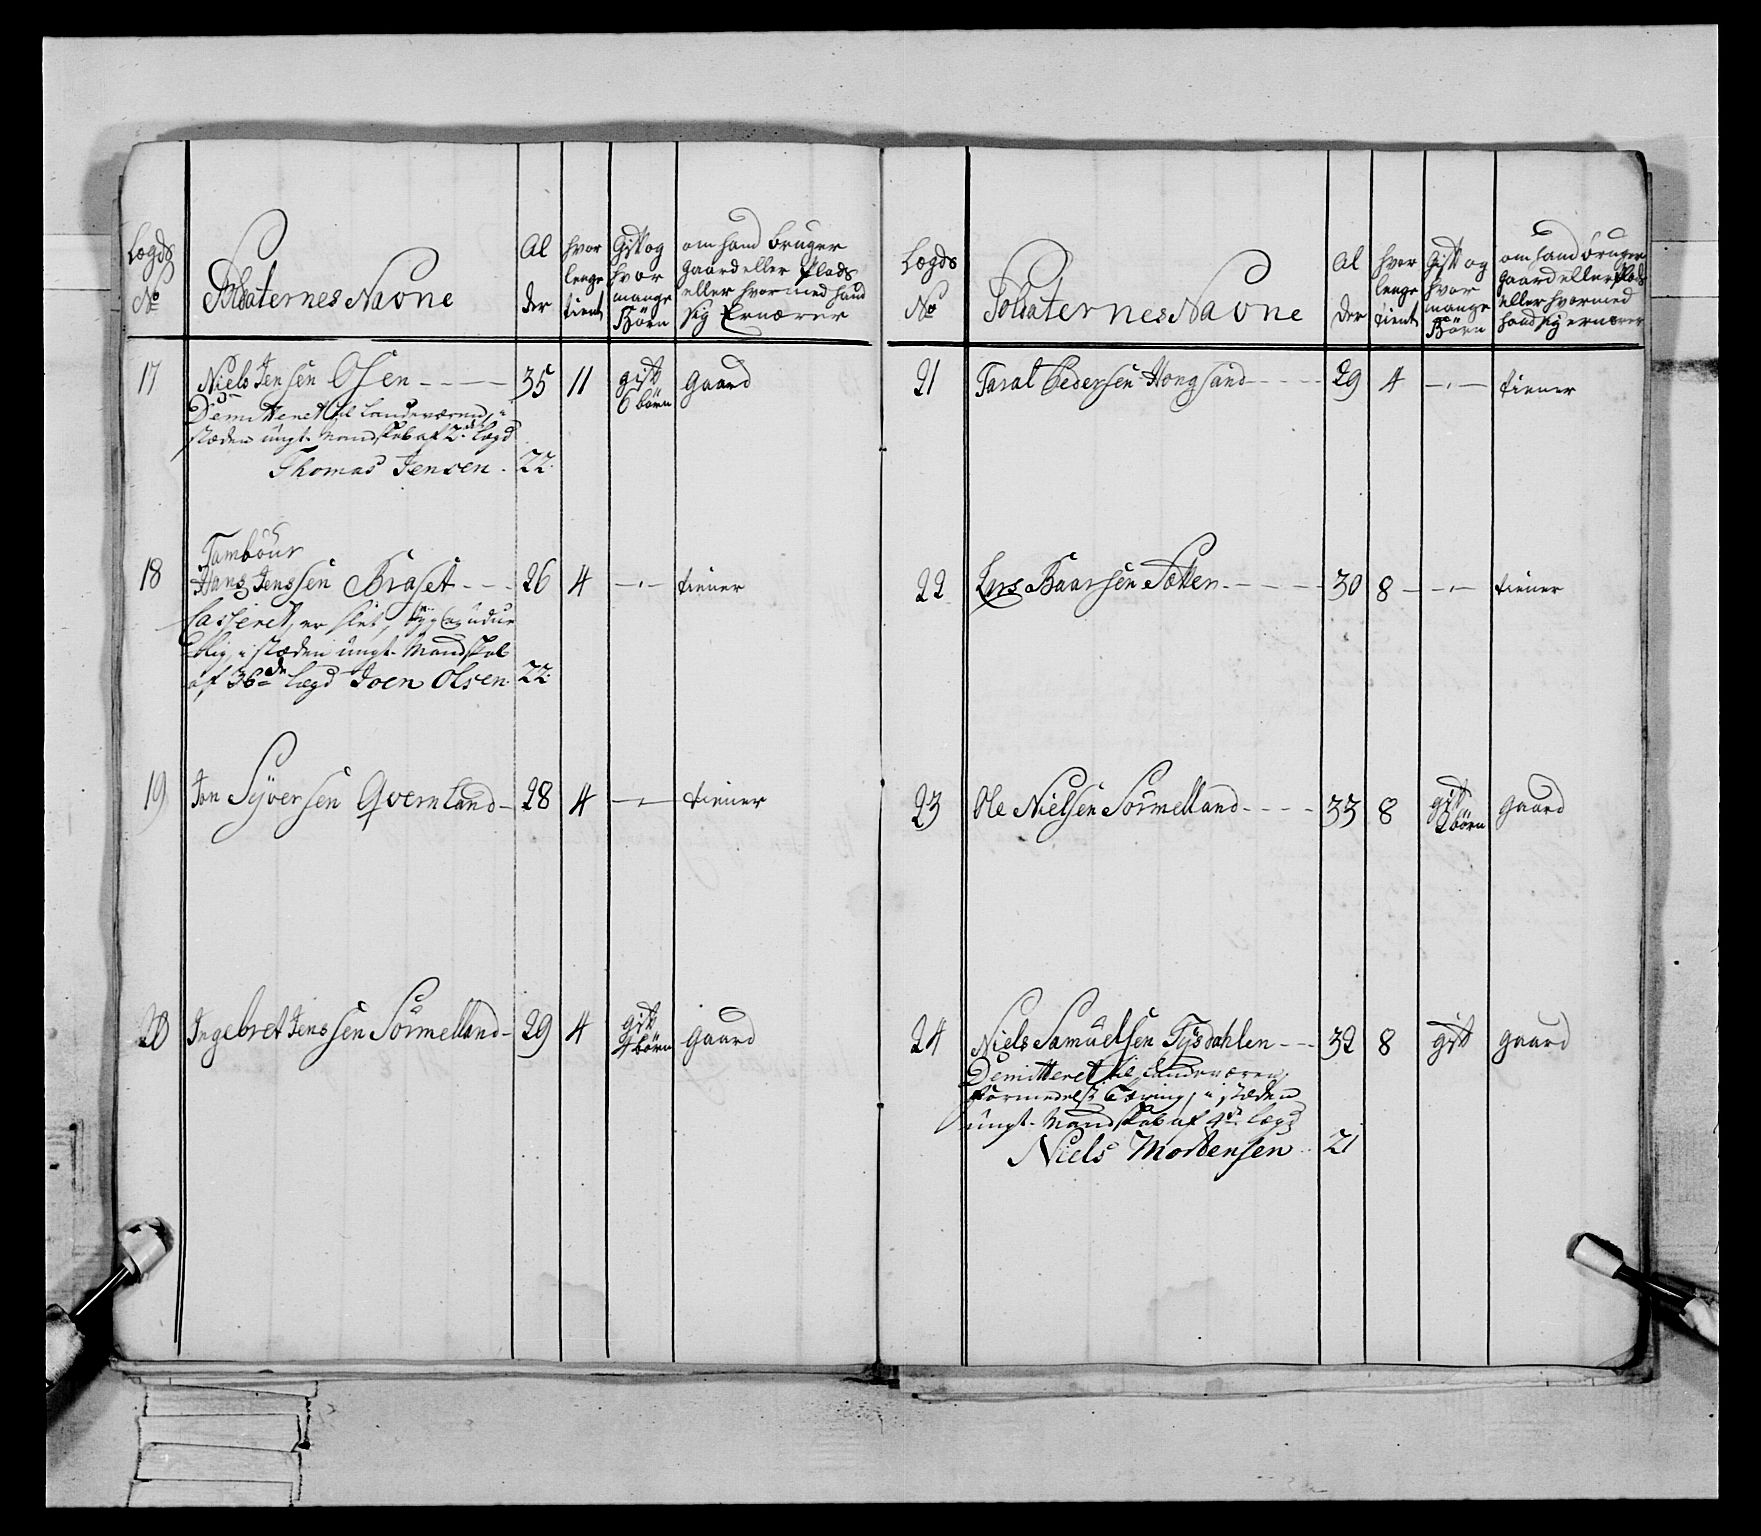 Lægds
No
Soldaternes Navne
Al
der
hvor
lenge
tient
Gift og
hvor
mange
Börn
om hand bruger
gaard eller Plads
eller hvormed hand
sig Ernærer
17 Niels Jensen Osen 35 11 gift 6 börn gaard
Demitteret til Landeværned, i
stæden ungt Mandskab af 2de lægd
Thomas Jensen 22
Tambour
18 Hans Jenssen Braset 26 4 tiener
Casseret, er slet, syg og udue
lig, i stæden ungt Mandskab
af 36de lægd Joen Olsen 22
19 Jon Syversen Qvernland 28 4 tiener
20 Ingebret Jenssen Sörmelland 29 4 gift 4 börn gaard
Lægds
No
Soldaternes Navne
Al
der
hvor
lenge
tient
Gift og
hvor
mange
Börn
om hand bruger
gaard eller Plads
eller hvormed
hand sig ernærer
21 Taral Pedersen Hongsand 29 4 tiener
22 Lars Baarsen Sætter 30 8 tiener
23 Ole Nielsen Sörmelland 33 8 gift 2 börn gaard
24 Niels Samuelsen Tysdahlen 32 8 gift gaard
Demitteret til Landeværen,
formedelst i stæden
ungt Mandskab af 4de lægd
Niels Mortensen 21